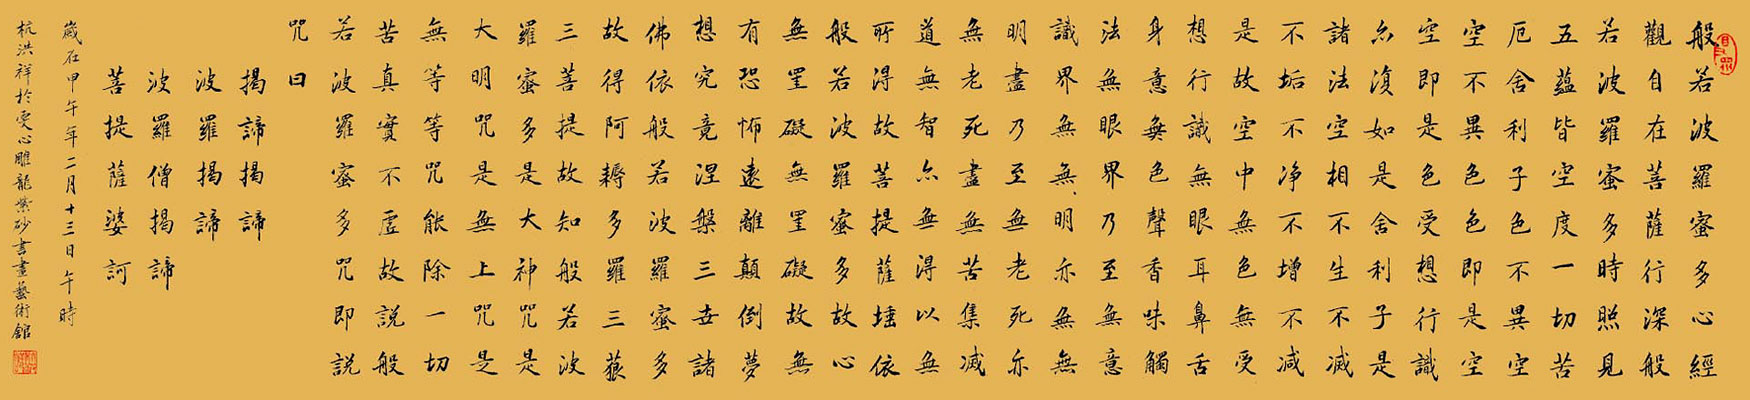 般若波羅蜜多心經
觀自在菩薩行深般
若波羅蜜多時照見
五蘊皆空度一切苦
厄舍利子色不異空
空不異色色即是空
空即是色受想行識
亦復如是舍利子是
諸法空相不生不滅
不垢不净不增不减
是故空中無色無受
想行識無眼耳鼻舌
身意無色聲香味觸
法無眼界乃至無意
識界無無明亦無無
明盡乃至無老死亦
無老死盡無苦集滅
道無智亦無得以無
所得故菩提薩埵依
般若波羅蜜多故心
無罣礙無罣礙故無
有恐怖遠離顛倒夢
想究竟涅槃三世諸
佛依般若波羅蜜多
故得阿耨多羅三藐
三菩提故知般若波
羅蜜多是大神咒是
大明咒是無上咒是
無等等咒能除一切
苦真實不虛故說般
若波羅蜜多咒即說
咒曰
揭諦揭諦
波羅揭諦
波羅僧揭諦
菩提薩婆訶
歲在甲午年二月十三日午時
杭洪祥於雯心雕龍紫砂書畫藝術館